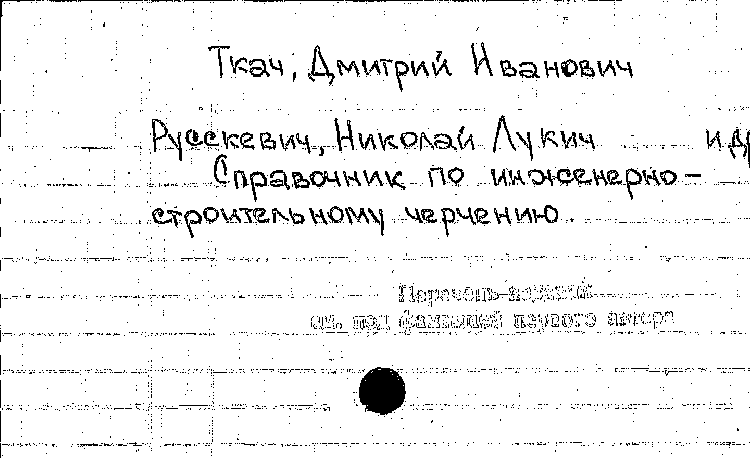 Ткач, Дмитрий Иванович
Русскевич, Николай Лукич и др
Справочник по инженерно-
строительному черчению.
Перечень изданий
см. под фамилией первого автора